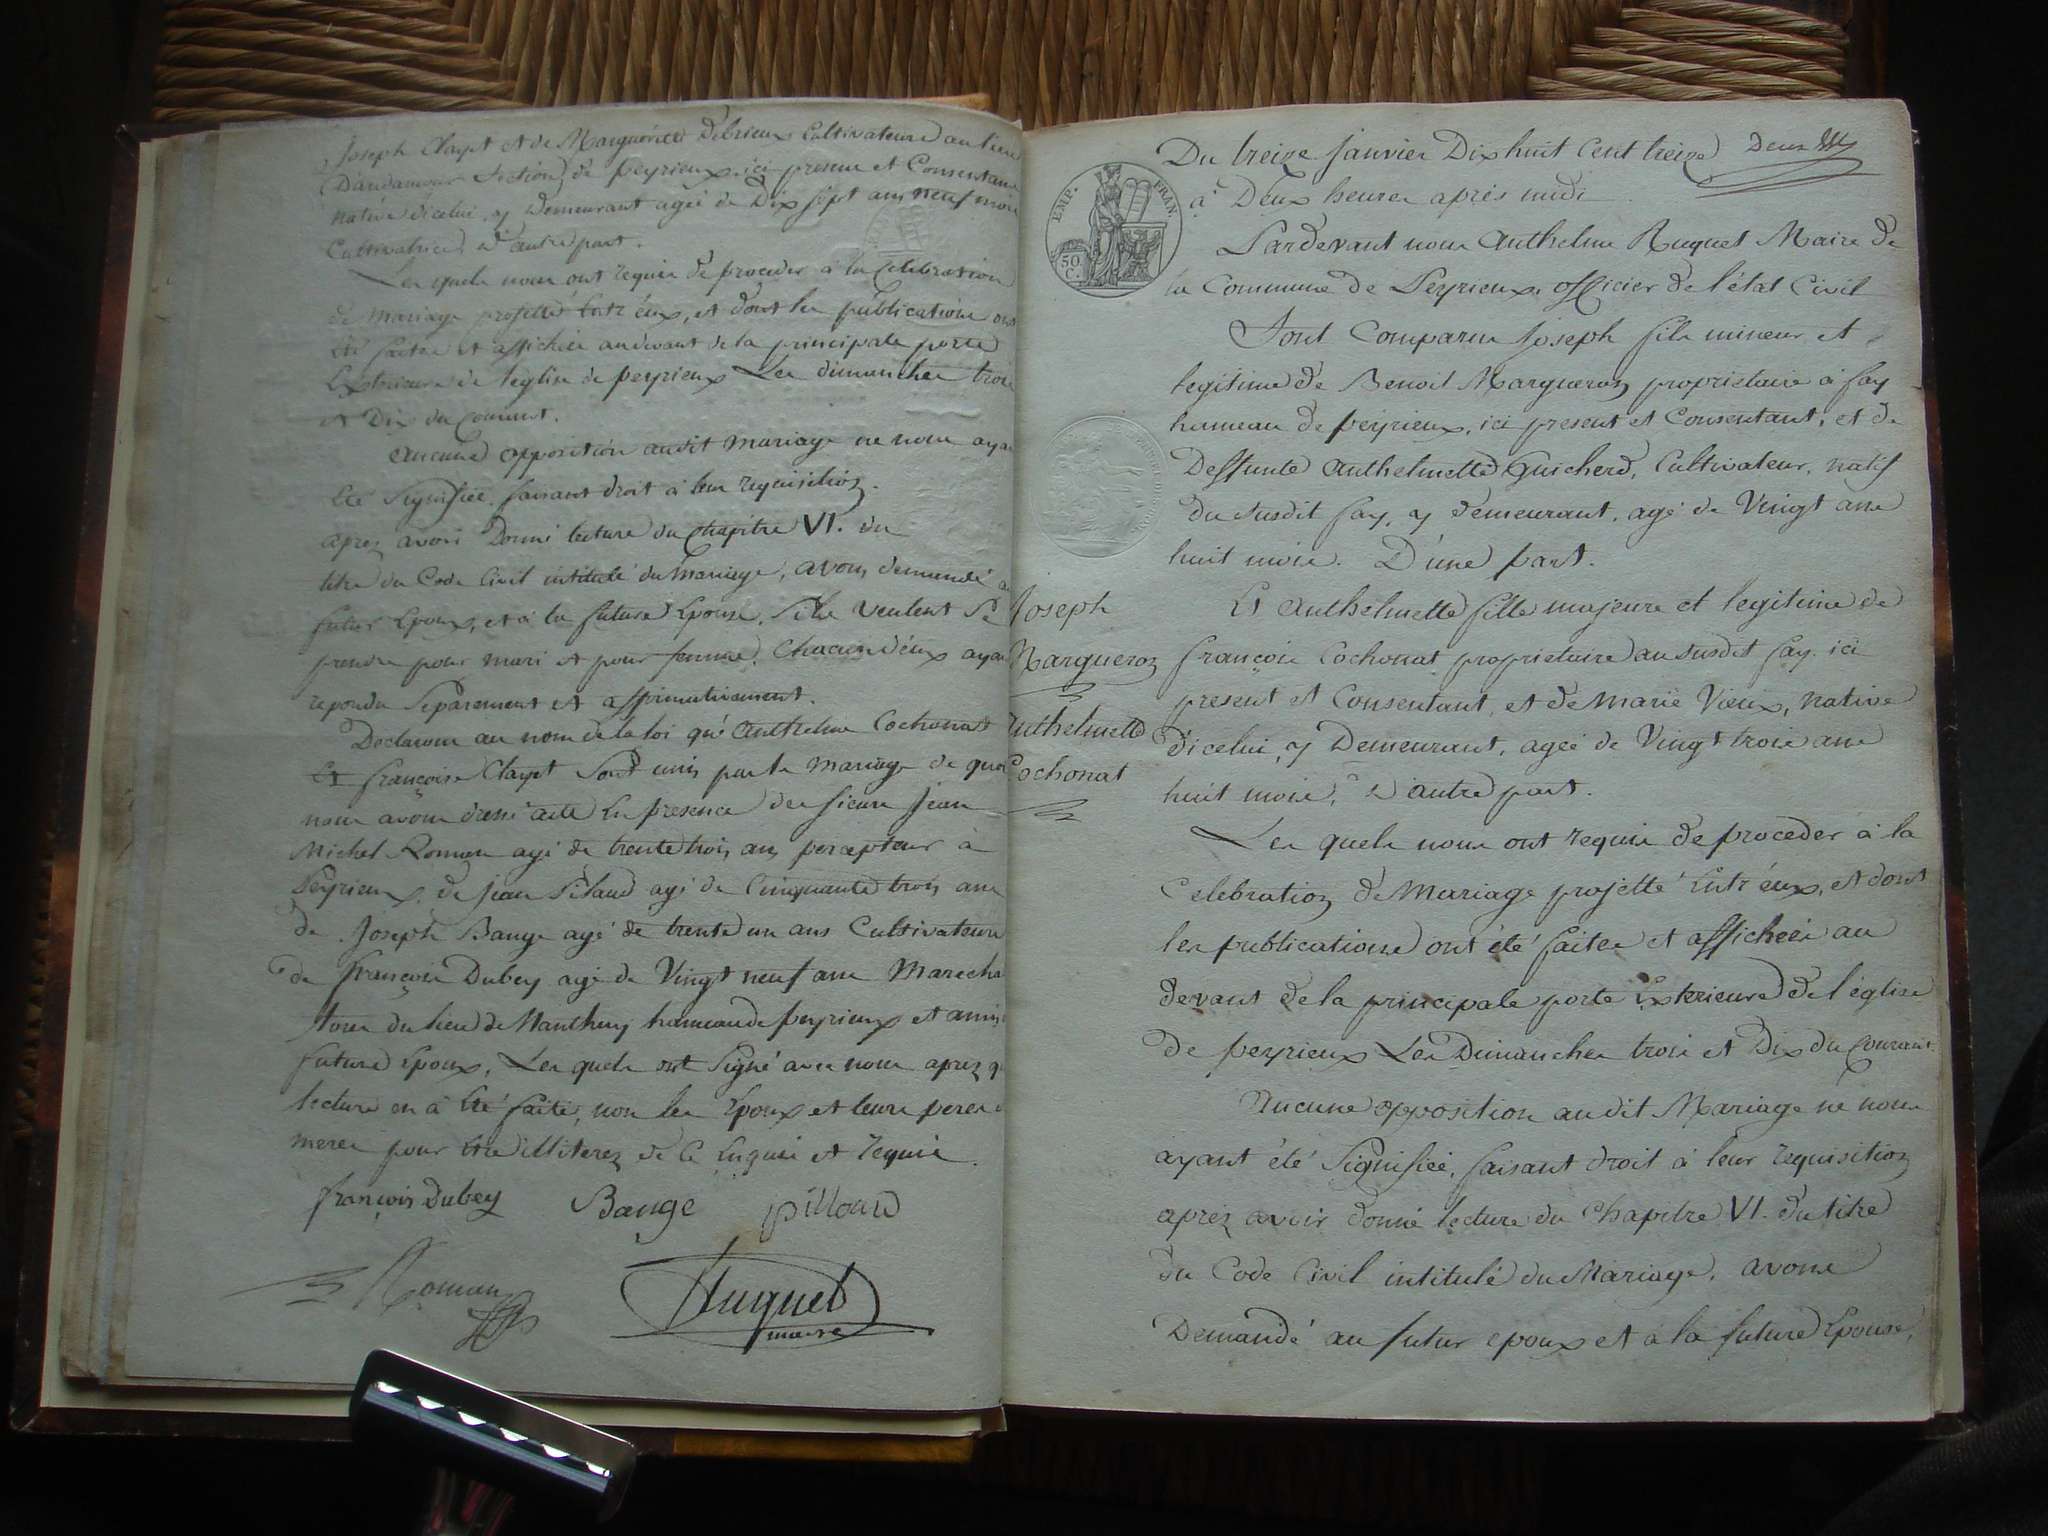 Joseph Clayet et de Margueritte Debrieux Cultivateurs au lieu
D'andamour Section de peyrieux ici presens et Consentans
native dicelui, y Demeurant agée de Dix sept ans neuf mois
Cultivatrice, D'autre part.
Les quels nous ont requis de proceder à la Celebration
de Mariage projetté Entr'eux, et dont les publications ont
Eté faites et affichées audevant de la principale porte
Exterieure de leglise de peyrieux Les dimanches trois
et Dix du Courant.
Aucune opposition audit mariage ne nous aya
Eté Signifiée, faisant droit à leur requisition.
aprez avoir Donné lecture du Chapitre VI. du
titre du Code Civil intitulé du Mariage, avons demandé au
futur Epoux, et à la future Epouse, S'ils veulent Se
prendre pour mari et pour femme, Chacun d'eux aya
repondu Séparement et affirmativement.
Declarons au nom de la loi qu'Anthelme Cochonat
Et françoise Clayet Sont unis par le mariage de quoi
nous avons dressé acte En presence des Sieurs Jean
Michel Roman agé de trente trois ans percepteur à
Peyrieux, de Jean Pilloud agé de Cinquante trois ans
de Joseph Bauge agé de trente un ans Cultivateurs
de françois Dubey agé de Vingt neuf ans Marecha
tous du lieu de Nanthuy hameau de peyrieux et amis
futurs Epoux, Les quels ont Signé avec nous aprez q
lecture en à Eté faite, non les Epoux et leurs peres
meres pour Etre illiterez de Ce Enquis et requis.
françois Dubey Bauge pilloud
Roman Ruquet
maire
Du treize Janvier Dix huit Cent treize Deux
EMP. FRAN.
50 C.
à Deux heures après midi
Pardevant nous Anthelme Ruquet Maire de
la Commune de Peyrieux, officier de l'état Civil
Sont Comparus Joseph fils mineur et
legitime de Benoit Margueron proprietaire à fay
hameau de peyrieux, ici present et Consentant, et de
Deffunte Anthelmette Guicherd, Cultivateur, natif
du susdit fay, y demeurant, agé de Vingt ans
huit mois. D'une part.
Joseph
Margueron
Anthelmette
Cochonat
Et Anthelmette fille majeure et legitime de
françois Cochonat proprietaire au susdit fay, ici
present et Consentant, et de Marie Vieux, native
dicelui, y Demeurant, agée de Vingt trois ans
huit mois, D'autre part.
Les quels nous ont requis de proceder à la
Celebration de Mariage projetté Entr'eux, et dont
les publications ont été faites et affichées au
devant de la principale porte Exterieure de l'église
de peyrieux Les Dimanches trois et Dix du Courant
Aucune opposition au dit Mariage ne nous
ayant été Signifiée, faisant droit à leur requisition
aprez avoir donné lecture du Chapitre VI. du titre
du Code Civil intitulé du Mariage, avons
Demandé au futur epoux et à la future Epouse,